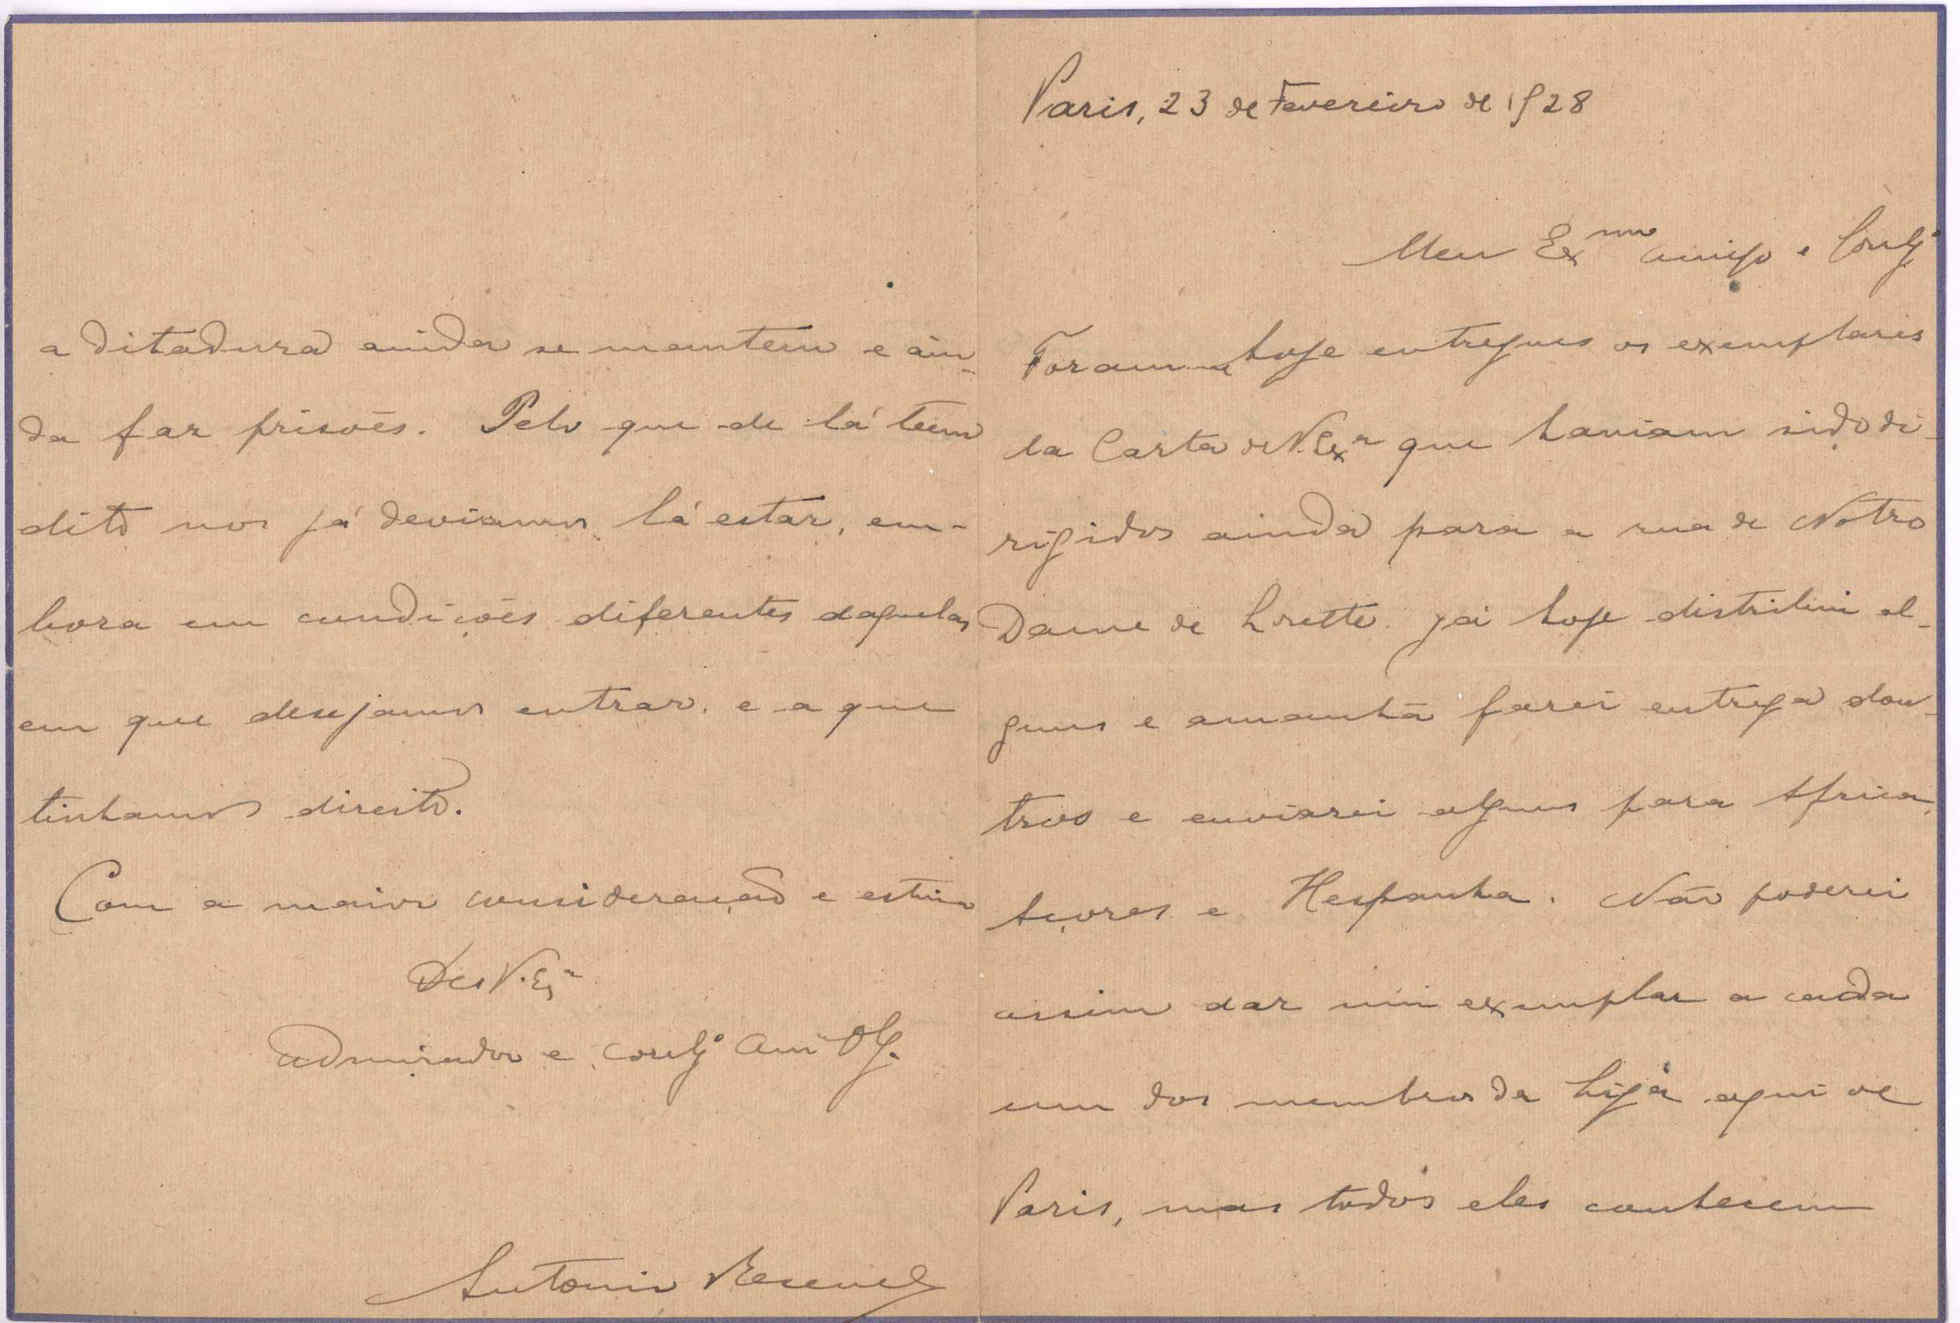 Paris, 23 de Fevereiro de 1928
Meu Ex.mo amigo e Corrlg.º
Foram hoje entregues os exemplares
da Carta de V. Ex.a que haviam sido di-
rigidos ainda para a rua de Notre
Dame de Lorette. Já hoje distribui al-
guns e amanhã farei entrega dou-
tros e enviarei alguns para Africa,
Açores e Hespanha. Não poderei
assim dar um exemplar a cada
um dos membros da Liga aqui de
Paris, mas todos eles conhecem
a ditadura ainda se mantem e ain-
da faz prisões. Pelo que de lá teem
dito nos já deviamos lá estar, em-
bora em condições diferentes daquelas
em que desejamos entrar. e a que
tinhamos direito.
Com a maior consideração e estima
De V. Ex.a
admirador e corrlg.º am.º Obg.
Antonio